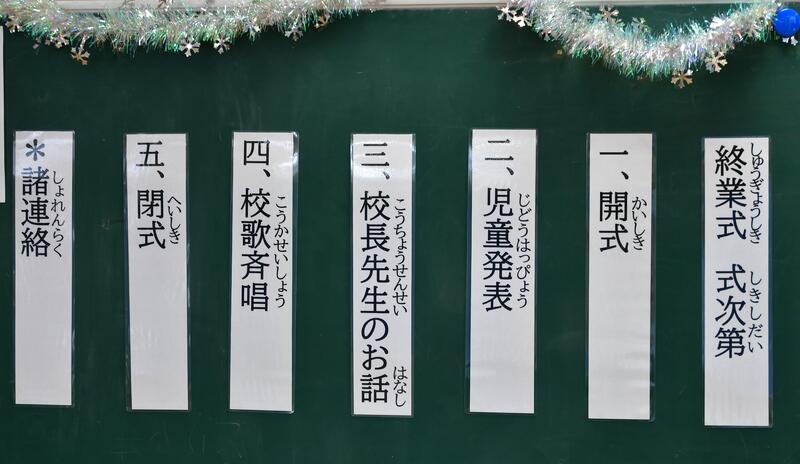 終業式　式次第
しゅうぎょうしき　しきしだい
一、開式
かいしき
二、児童発表
じどうはっぴょう
三、校長先生のお話
こうちょうせんせい　はなし
四、校歌斉唱
こうかせいしょう
五、閉式
へいしき
＊諸連絡
しょれんらく